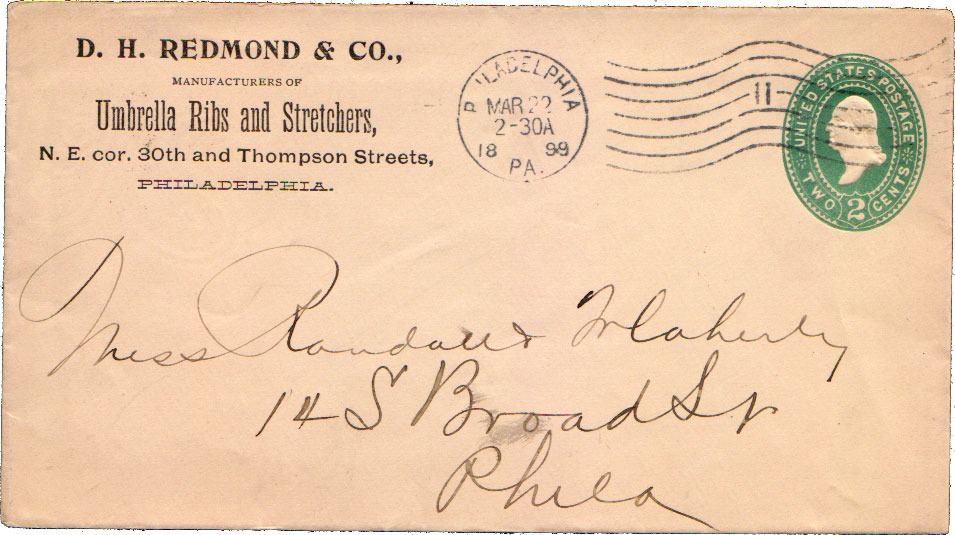 D. H. REDMOND & CO.,
MANUFACTURERS OF
Umbrella Ribs and Stretchers,
N. E. cor. 30th and Thompson Streets,
PHILADELPHIA.
PHILADELPHIA
MAR 22
2-30A
18 99
PA.
11
UNITED STATES POSTAGE
TWO 2 CENTS
Randall &
14 S Broad St
Phila